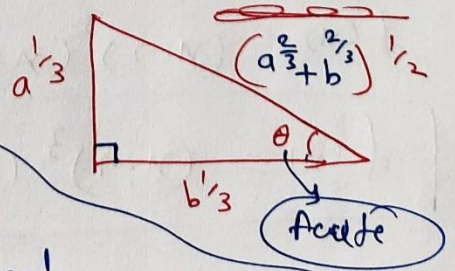 a^{1/3}
(a^{2/3} + b^{2/3})^{1/2}
θ
b^{1/3}
Acute